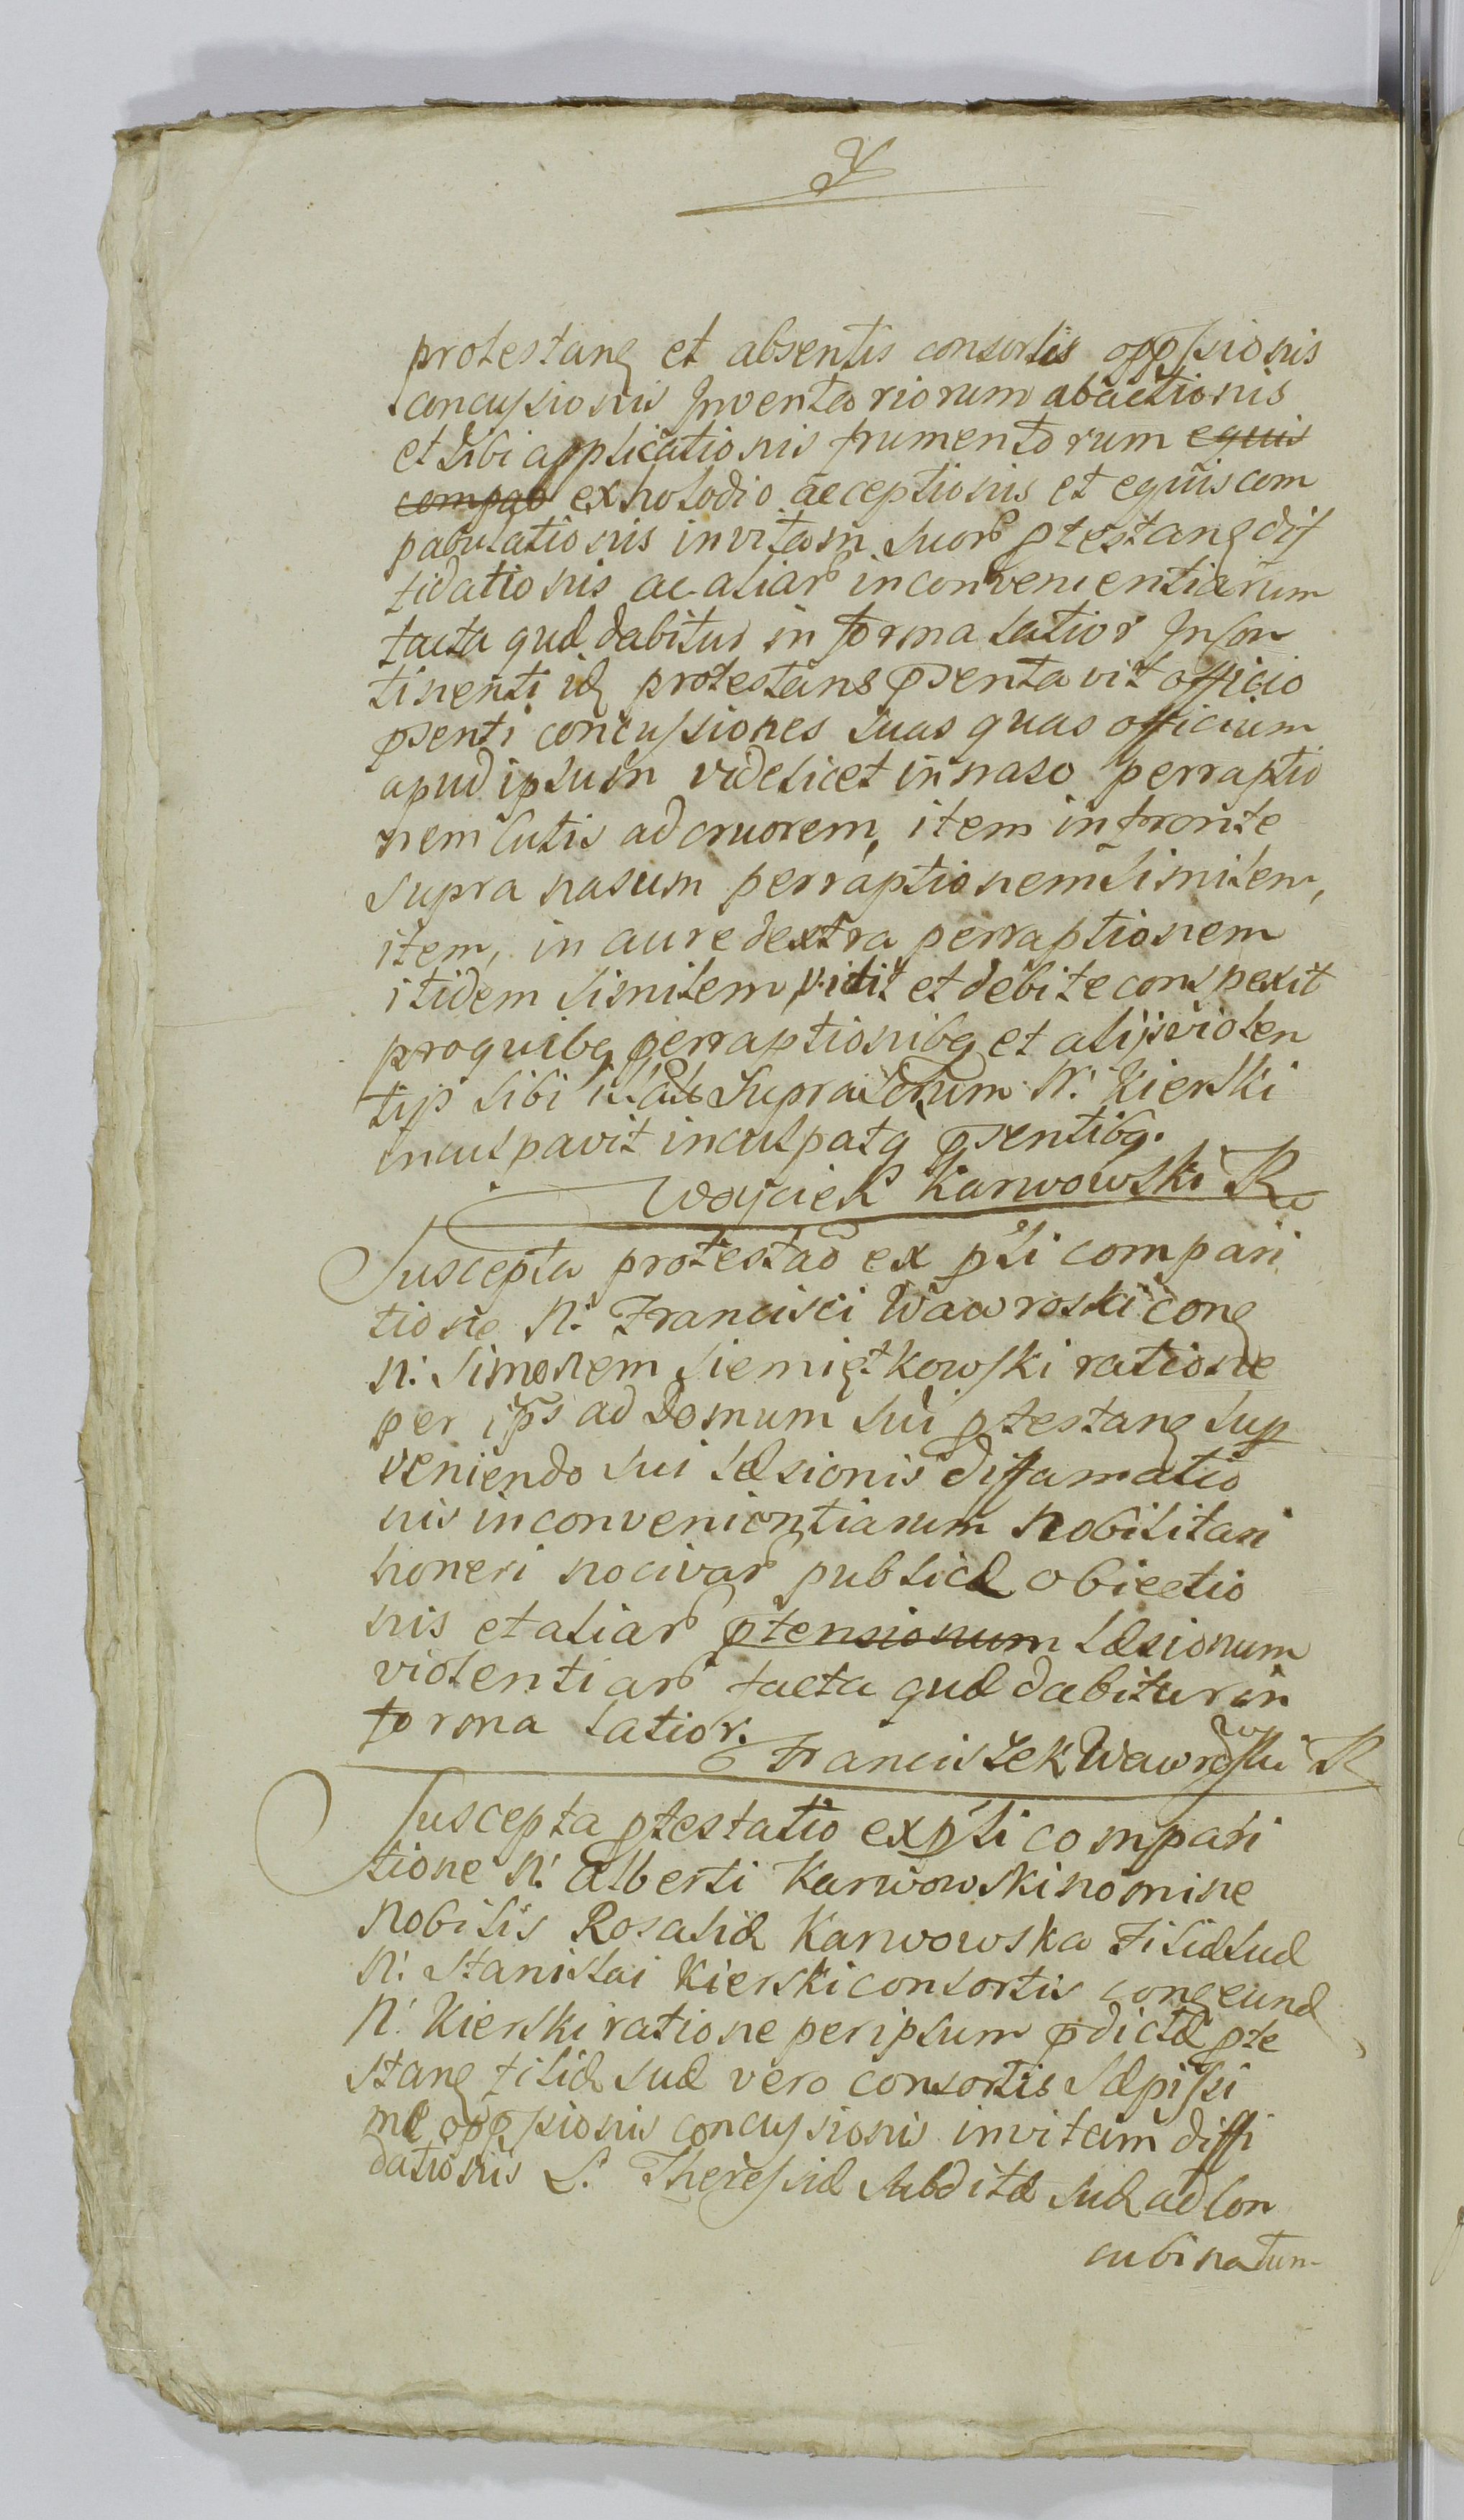 protestanꝭ et absentis consortis oppꝛssionis
concussionis Inventariorum abactionis
et sibi applicationis frumentorum equis
compab ex horodio acceptionis et equis com
pabulationis invitam suorꝝ ꝓtestanꝭ dif
fidationis ac aliarꝝ inconvenientiarum
facta quæ dabitur in forma latior Incon
tinenti idꝭ protestans pꝛsentavit officio
pꝛsenti concussiones suas quas officium
apud ipsum videlicet in naso perraptio
nem cutis ad cruorem, item in fronte
supra nasum perraptionem similem,
item, in aure dextra perraptionem
itidem similem vidit et debite conspexit
pro quibꝫ perraptionibꝫ et alijs violen
tijs sibi supradictum N: Kierski
inculpavit inculpatqꝫ pꝛsentibꝫ.
Woyciech Karwowski
Suscepta protestaõ ex pꝉi compari
tione N: Francisci Wawroski conꝭ
N: Simonem Siemiętkowski ratione
per ips̃ ad Domum sui ꝓtestanꝭ sup
veniendo sui læsionis diffamatio
nis inconvenientiarum Nobilitari
honeri nocivarꝝ publicæ obiectio
nis et aliarꝝ pꝛtensionum læsionum
violentiarꝝ facta quæ dabitur in
forma latior.
Franciszek Wawrowski
Suscepta ꝓtestatio ex pꝉi compari
tione N: Alberti Karwowski nomine
Nobilis Rosaliæ Karwowska Filiæ suæ
N: Stanislai Kierski consortis conꝭ eund
N: Kierski ratione per ipsum pꝛdictæ ꝓte
stanꝭ filiæ suæ vero consortis sæpissi
mæ oppꝛssionis concussionis invitam diffi
dationis L: Theressiæ subditæ suæ ad con
cubinatum